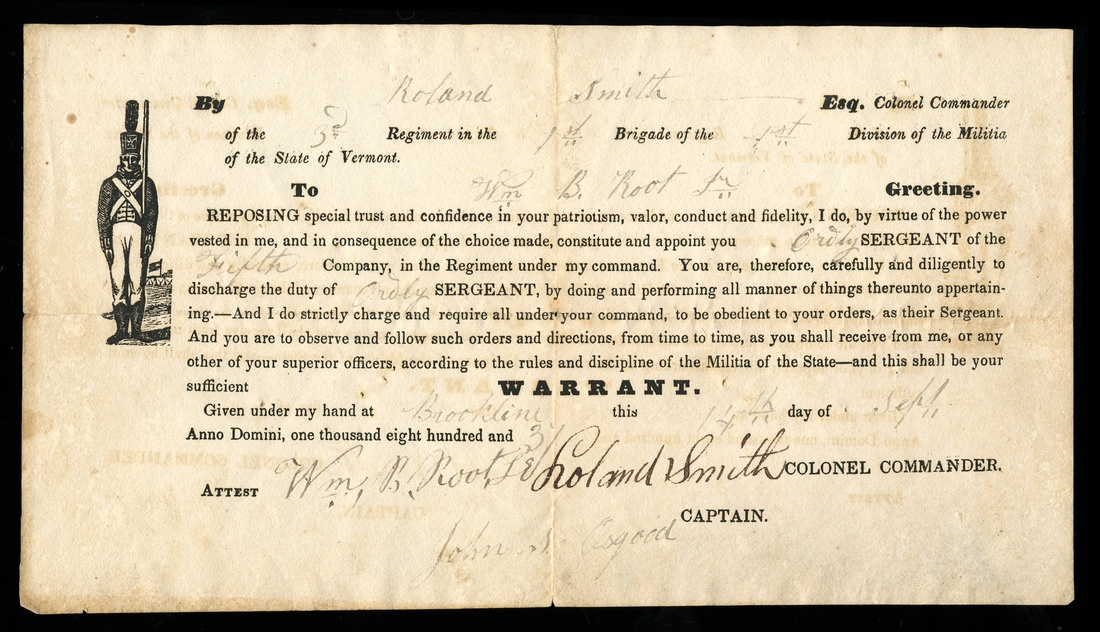 By Roland Smith Esq. Colonel Commander
of the 3d Regiment in the 1st Brigade of the 1st Division of the Militia
of the State of Vermont.
To Wm B. Root Jr Greeting.
REPOSING special trust and confidence in your patriotism, valor, conduct and fidelity, I do, by virtue of the power
vested in me, and in consequence of the choice made, constitute and appoint you Ordly SERGEANT of the
Fifth Company, in the Regiment under my command. You are, therefore, carefully and diligently to
discharge the duty of Ordly SERGEANT, by doing and performing all manner of things thereunto appertain-
ing.—And I do strictly charge and require all under your command, to be obedient to your orders, as their Sergeant.
And you are to observe and follow such orders and directions, from time to time, as you shall receive from me, or any
other of your superior officers, according to the rules and discipline of the Militia of the State—and this shall be your
sufficient WARRANT.
Given under my hand at Brookline this 14th day of Sept
Anno Domini, one thousand eight hundred and 37
Roland Smith COLONEL COMMANDER.
ATTEST Wm. B. Root
CAPTAIN.
John S. Osgood